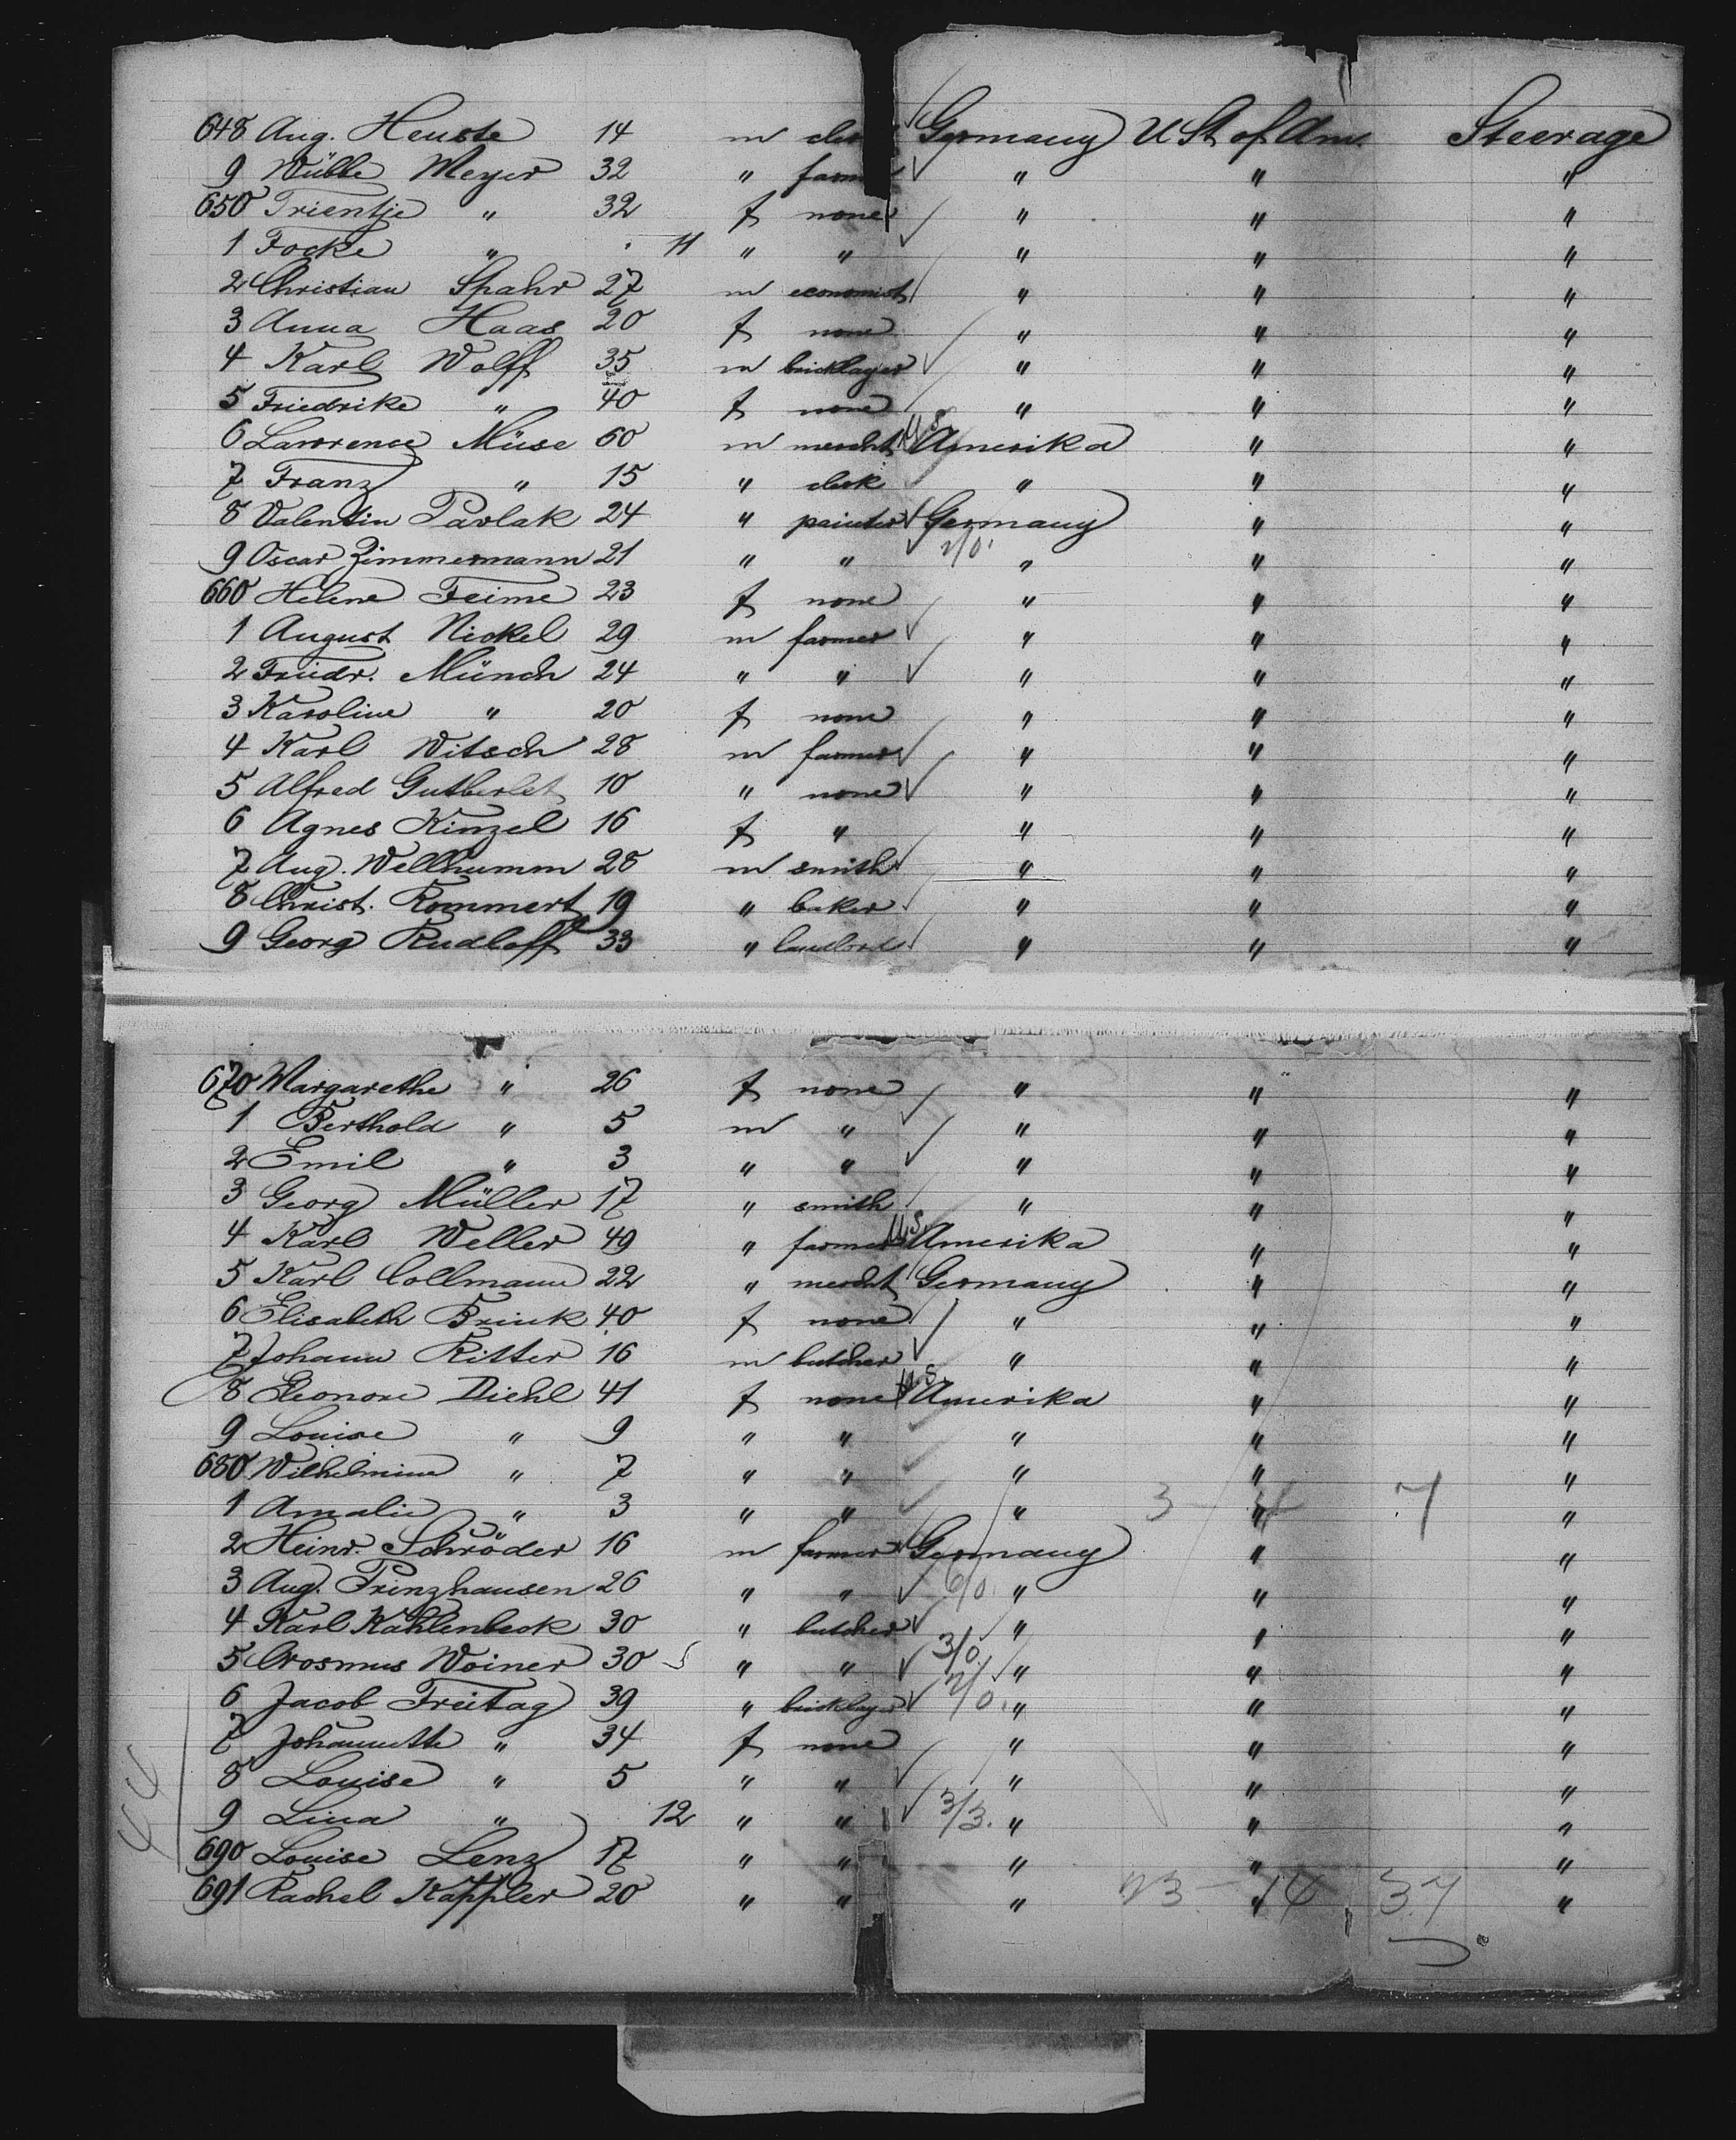 648 Aug. Henste 14 m cler Germany U St. of Am. Steerage
9 Wübbe Meyer 32 " farme " " "
650 Trientje " 32 f none " " "
1 Focke " 11 " " " " "
2 Christian Spahr 27 m economist " " "
3 Anna Haas 20 f none " " "
4 Karl Wolff 35 m bricklayer " " "
5 Friedrike " 40 f none " " "
6 Lawrence Müse 60 m mercht U.S. Amerika " "
7 Franz " 15 " clerk " " "
8 Valentin Pavlak 24 " painter Germany " "
9 Oscar Zimmermann 21 " " 2/0. " " "
660 Helene Feime 23 f none " " "
1 August Nickel 29 m farmer " " "
2 Friedr. Münch 24 " " " " "
3 Karoline " 20 f none " " "
4 Karl Witsch 28 m farmer " " "
5 Alfred Gutberlet 10 " none " " "
6 Agnes Kinzel 16 f " " " "
7 Aug. Wellhumm 28 m smith " " "
8 Christ. Rommert 19 " baker " " "
9 Georg Rudloff 33 " landlord " " "
670 Margarethe " 26 f none " " "
1 Berthold " 5 m " " " "
2 Emil " 3 " " " " "
3 Georg Müller 17 " smith " " "
4 Karl Weller 49 " farmer U.S. Amerika " "
5 Karl Collmann 22 " mercht Germany " "
6 Elisabeth Brink 40 f none " " "
7 Johann Ritter 16 m butcher " " "
8 Eleonore Diehl 41 f none U.S. Amerika " "
9 Louise " 9 " " " " "
680 Wilhelmine " 7 " " " " "
1 Amalie " 3 " " " 3 " 7 "
2 Heinr. Schröder 16 m farmer Germany " "
3 Aug. Prinzhausen 26 " " 6/0. " " "
4 Karl Kahlenbeck 30 " butcher " " "
5 Crosmus Woiner 30 " " 3/0. " " "
6 Jacob Freitag 39 " bricklayer 2/0. " " "
7 Johannette " 34 f none " " "
8 Louise " 5 " " " " "
9 Lina " 12 " " 3/3. " " "
690 Louise Lenz 17 " " " " "
691 Rachel Kappler 20 " " " 23 - 14 " 37 "